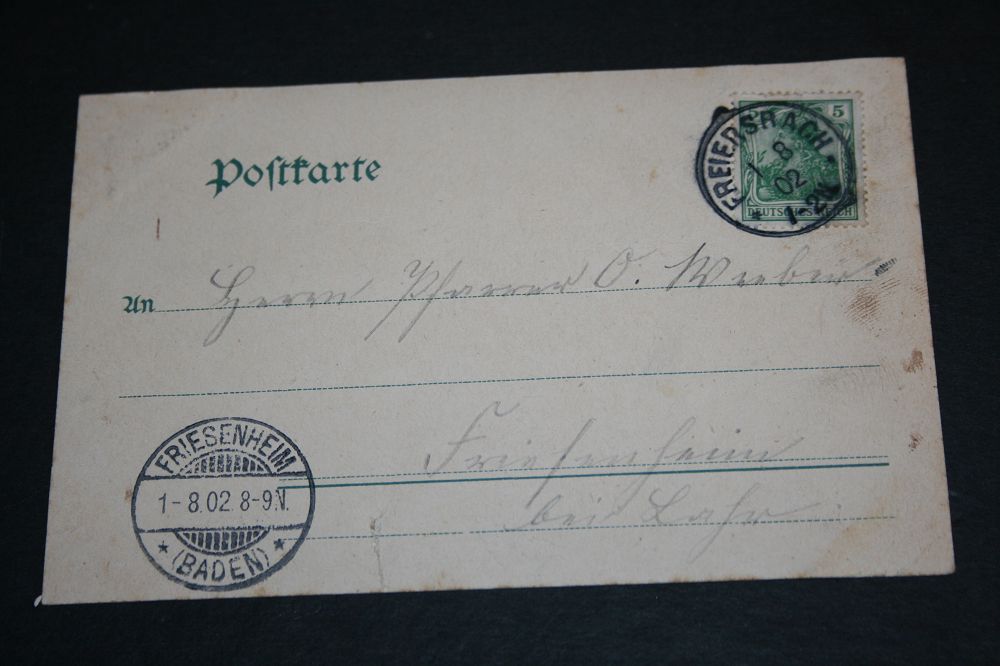 5
FREIERSBACH.
1 8
02
1-2N
DEUTSCHES REICH
Postkarte
An Herrn Pfarrer O.
Friesenheim
bei Lahr
FRIESENHEIM
1-8.02.8-9.N.
* (BADEN) *